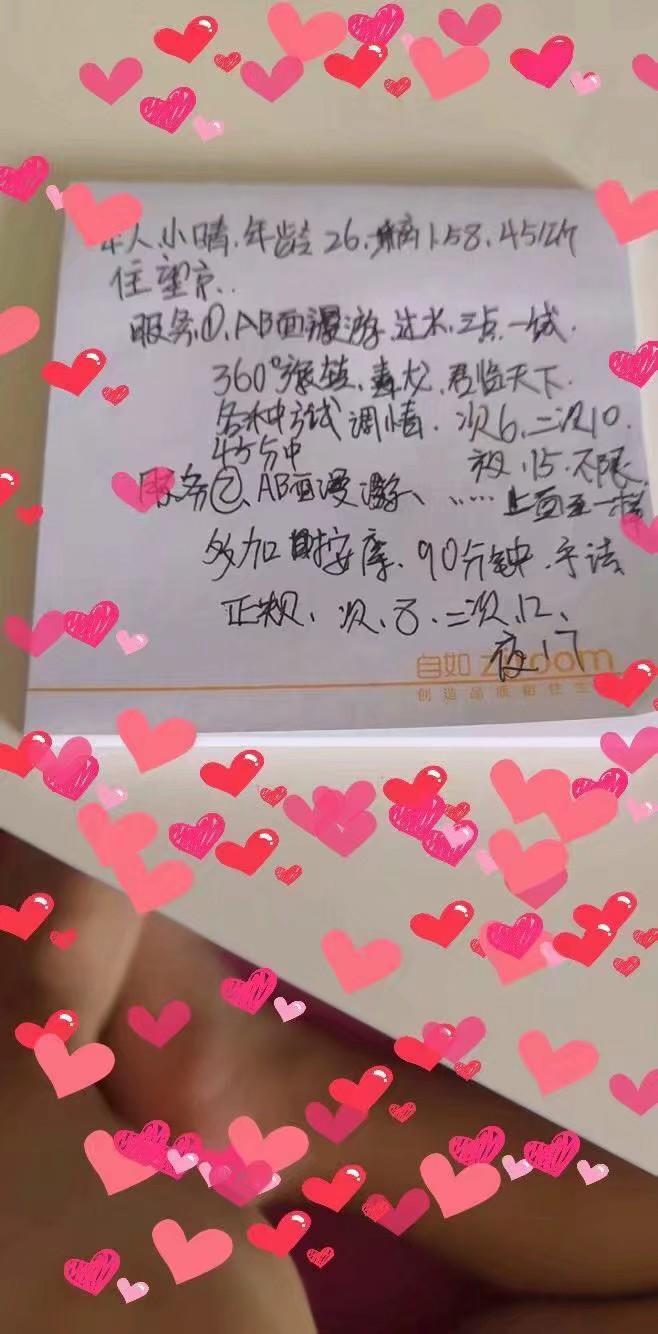 本人.小晴.年龄26.躺1.58.45公斤
住望京..
服务①.AB面漫游.过水.三点一线.
360°.毒龙.君临天下.
各种调情.次6.二次10.
45分中
夜.15.不限
服务②.AB面漫游、……上面至一样
多加按摩.90分钟.手法
正规、次.8.二次.12、
夜.17
自如 ziroom
创造品质租住生